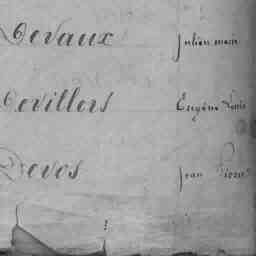 Devaux Julien marie
Devillers Eugène Louis
Devos Jean Pierre